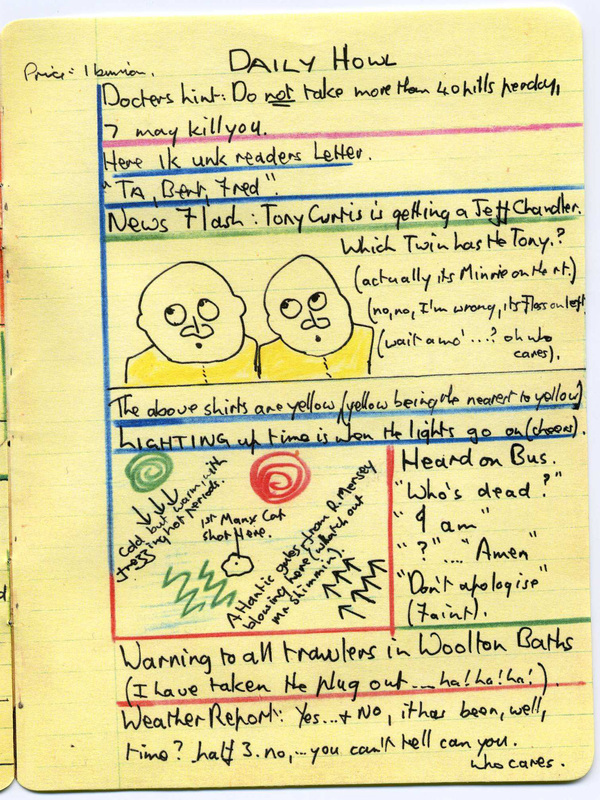 DAILY HOWL
Price = 1 bunion.
Docters hint: Do not take more than 40 pills perday,
7 may kill you.
Here ik unk readers Letter.
"TA, Bert, Fred".
News Flash: Tony Curtis is getting a Jeff Chandler.
Which Twin has He Tony.?
(actually its Minnie on the rt.)
(no, no, I'm wrong, its Floss on left
(wait a mo' ...? oh who
cares).
The above shirts are yellow (yellow being the nearest to yellow)
LIGHTING up time is when the lights go on (cheers).
Cold but warm, with
freezing hot periods.
1st Manx Cat
shot here.
Atlantic gales from R. Mersey
blowing home (watch out
mr Slimmin).
Heard on Bus.
"Who's dead?"
"I am"
"?" ... "Amen"
"Don't apologise"
(Faint).
Warning to all trawlers in Woolton Baths
(I have taken the plug out .... ha! ha! ha!).
Weather Report: Yes... + No, it has been, well,
time? half 3. no,... you can't tell can you.
who cares.